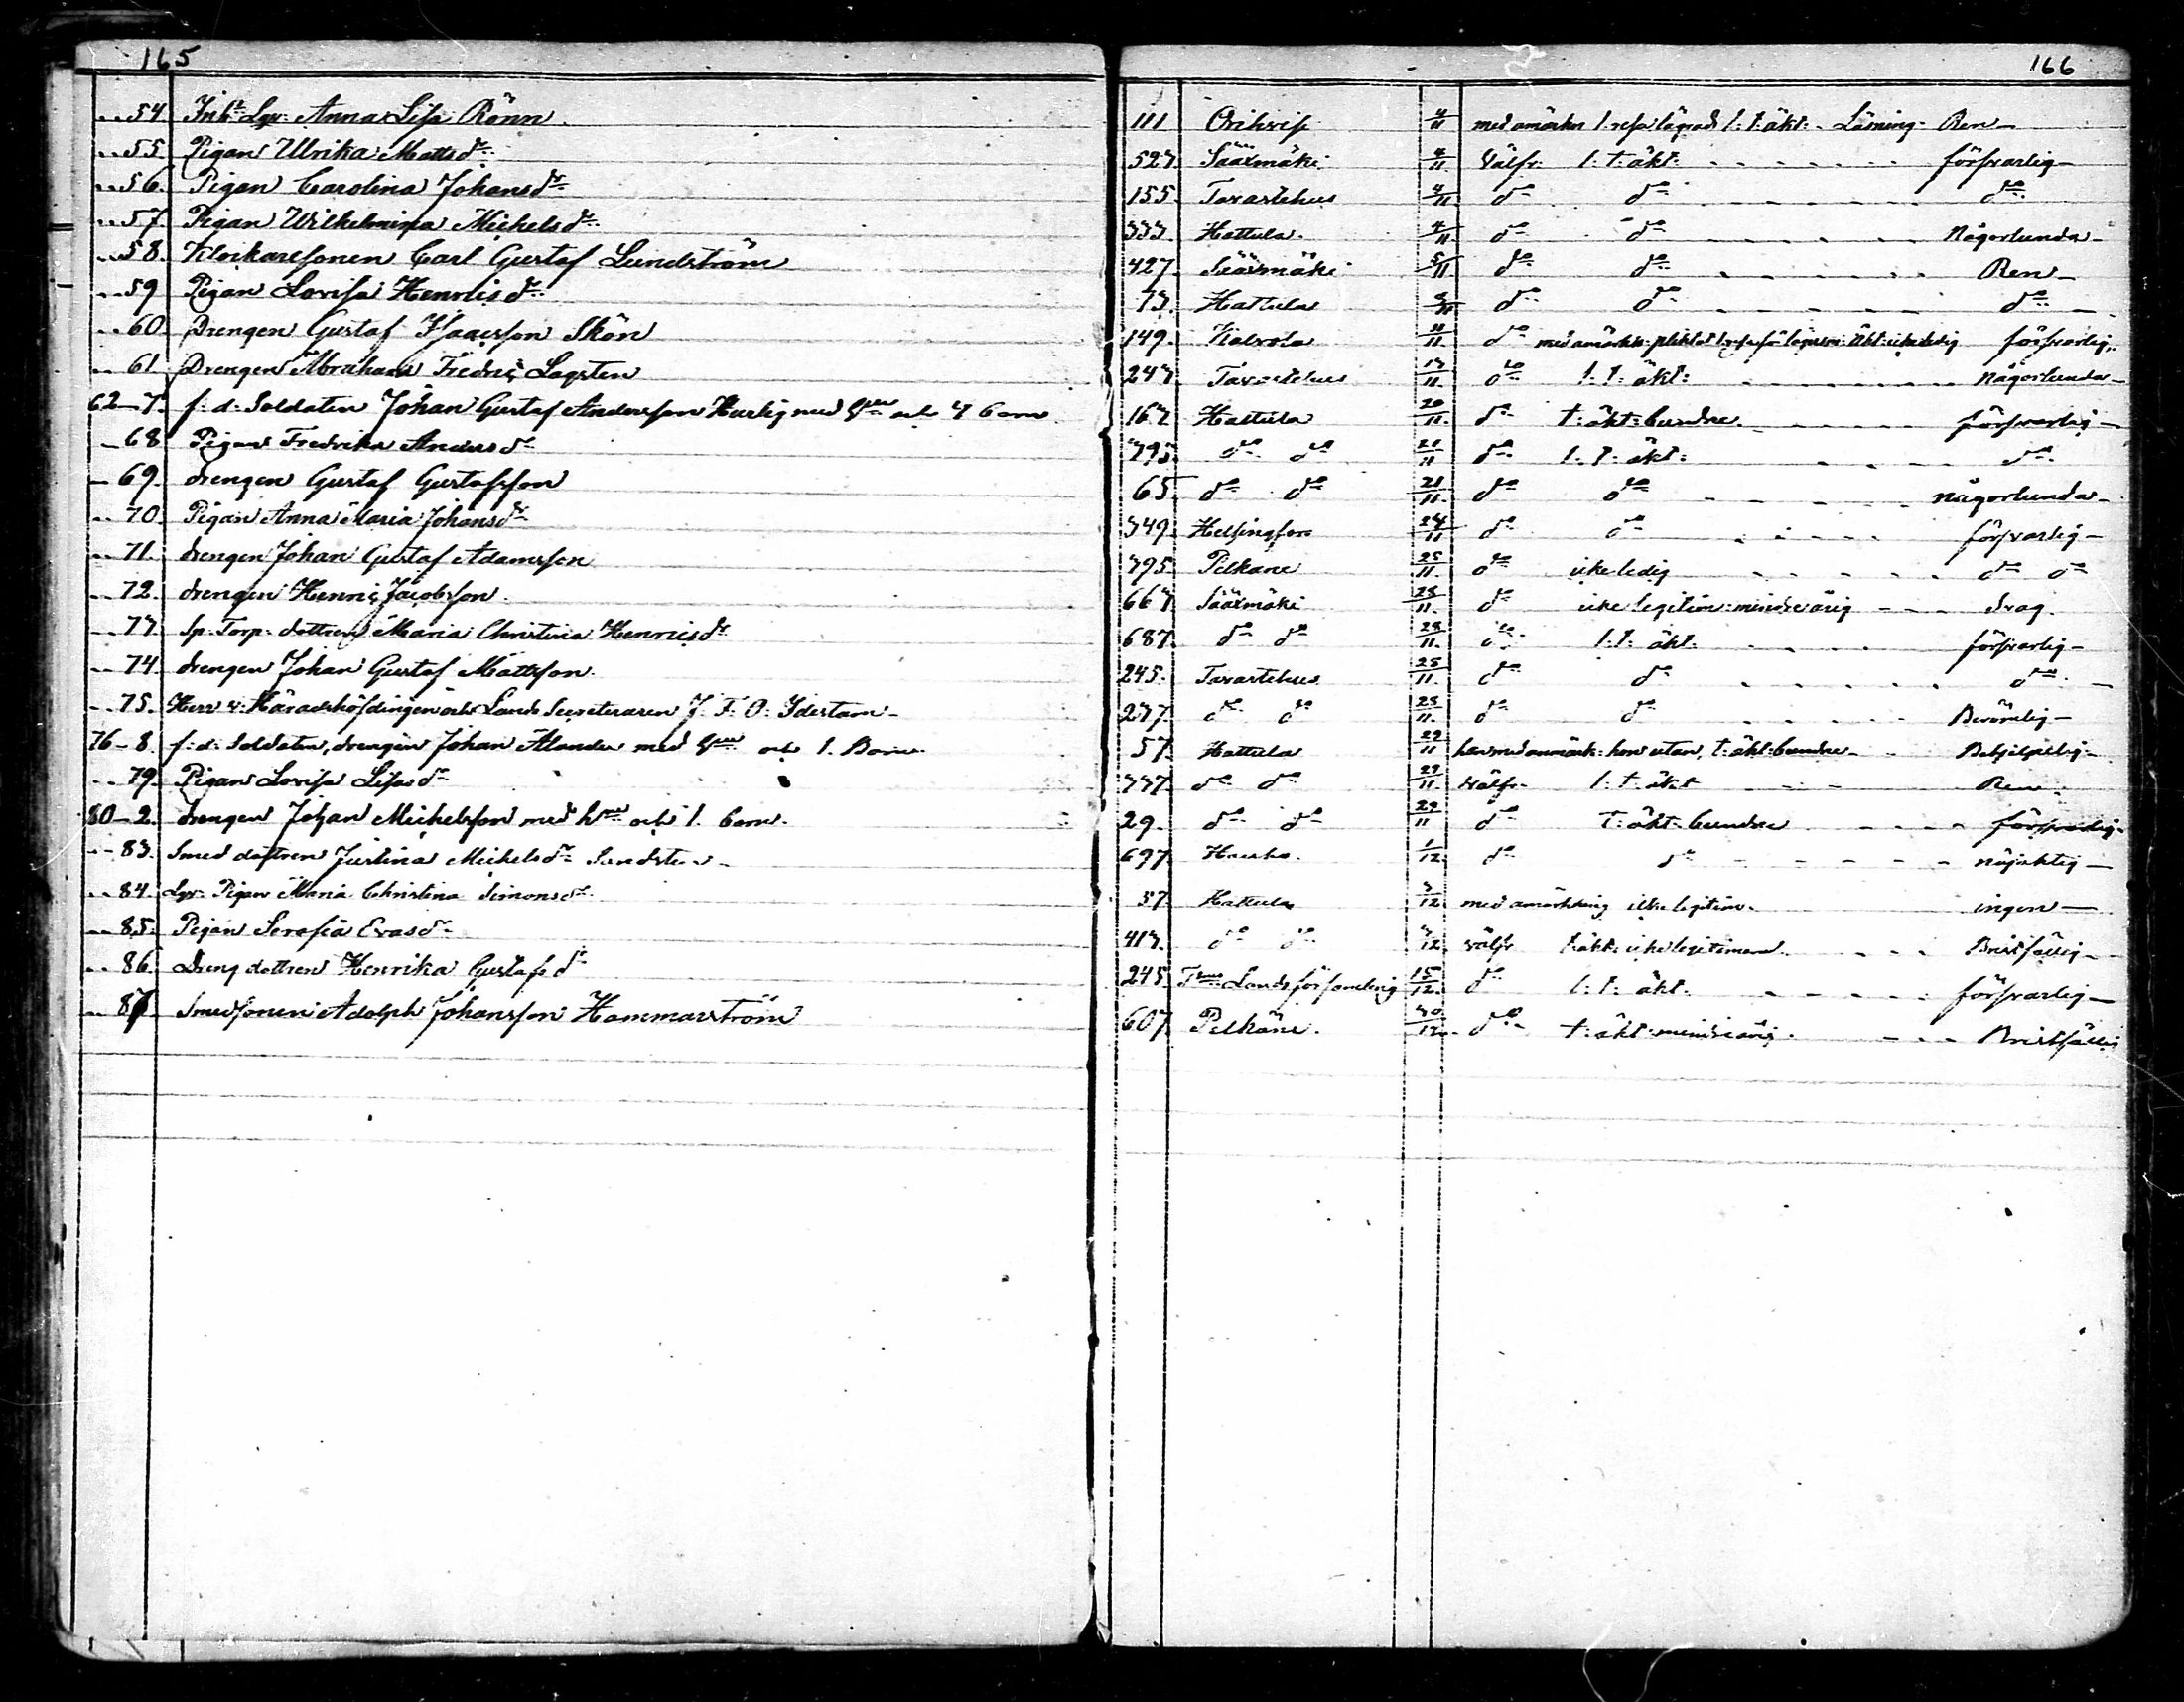 165
54. Inh: Lgr: Anna Lisa Rönn.
55. Pigan Ulrika Mattsdr
56. Pigan Carolina Johansdr
57. Pigan Wilhelmina Michelsdr
58. Klockaresonen Carl Gustaf Lundström
59 Pigan Lovisa Henricsdr
60. Drengen Gustaf Isaacsson Skön
61. Drengen Abraham Fredric Lagsten
62–7. f: d: Soldaten Johan Gustaf Andersson Hurlig med och 4 barn
68 Pigan Fredrika Andersdr
69. drengen Gustaf Gustafsson
70. Pigan Anna Maria Johansdr
71. drengen Johan Gustaf Adamsson
72. drengen Henric Jacobsson.
73. Sp: Torp: dottren Maria Christina Henricsdr
74. drengen Johan Gustaf Mattsson.
75. Herr v: Häradshöfdingen och Lands Secreteraren J. F. O: Idestam
76–8. f: d: Soldaten, drengen Johan Alander med och 1. Barn
79. Pigan Lovisa Lisasdr
80–2. drengen Johan Michelsson med och 1. barn.
83. Smed dottren Justina Michelsdr Sandsten
84. Lgr: Pigan Maria Christina Simonsdr
85. Pigan Serafia Evasdr
86. Dreng dottren Henrika Gustafsdr
87 Smedsonen Adolph Johansson Hammarström
166
111 Orihvesi 4/11 med anmärkn 1. resa lägrad l: t: äkt: Läsning Ren
527. Sääxmäki 4/11. Välfr: l: t: äkt: försvarlig
155. Tavastehus 4/11. do do do
333. Hattula. 4/11. do do Någorlunda
427. Sääxmäki 5/11 do do Ren
73. Hattula 9/11 do do do
149. Kalvola 11/11. do med anmärkn: försvarlig
243. Tavastehus 13/11. do l: t: äkt: Någorlunda
163 Hattula 20/11. do t: äkt: bundne försvarlig
393. do do 21/11 do l: t: äkt: do
65 do do 21/11. do do någorlunda
349. Helsingfors 24/11 do do försvarlig
395. Pelkäne 25/11. do icke ledig do do
667. Sääxmäki 28/11. do icke legitim: minderårig Svag.
687. do do 28/11. do l: t: äkt. försvarlig
245. Tavastehus 28/11. do do do
237. do do 28/11. do do Berömlig
57. Hattula 29/11 han med anmärk: hon utan, t: äkt: bundne
337. do do 29/11. Välfr. l: t: äkt Ren
29. do do 29/11 do t: äkt: bundne försvarlig
697. Hauho. 1/12. do do nöjaktig
37. Hattula 3/12 med anmärkning icke legitim. ingen
413. do do 3/12. välfr t: äkt: icke legitimerad Bristfällig
245. Lands församling 15/12. do l: t: äkt. försvarlig
607. Pelkäne. 30/12. do t: äkt: minderårig. Bristfällig